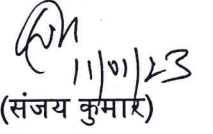 11/01/23
(संजय कुमार)